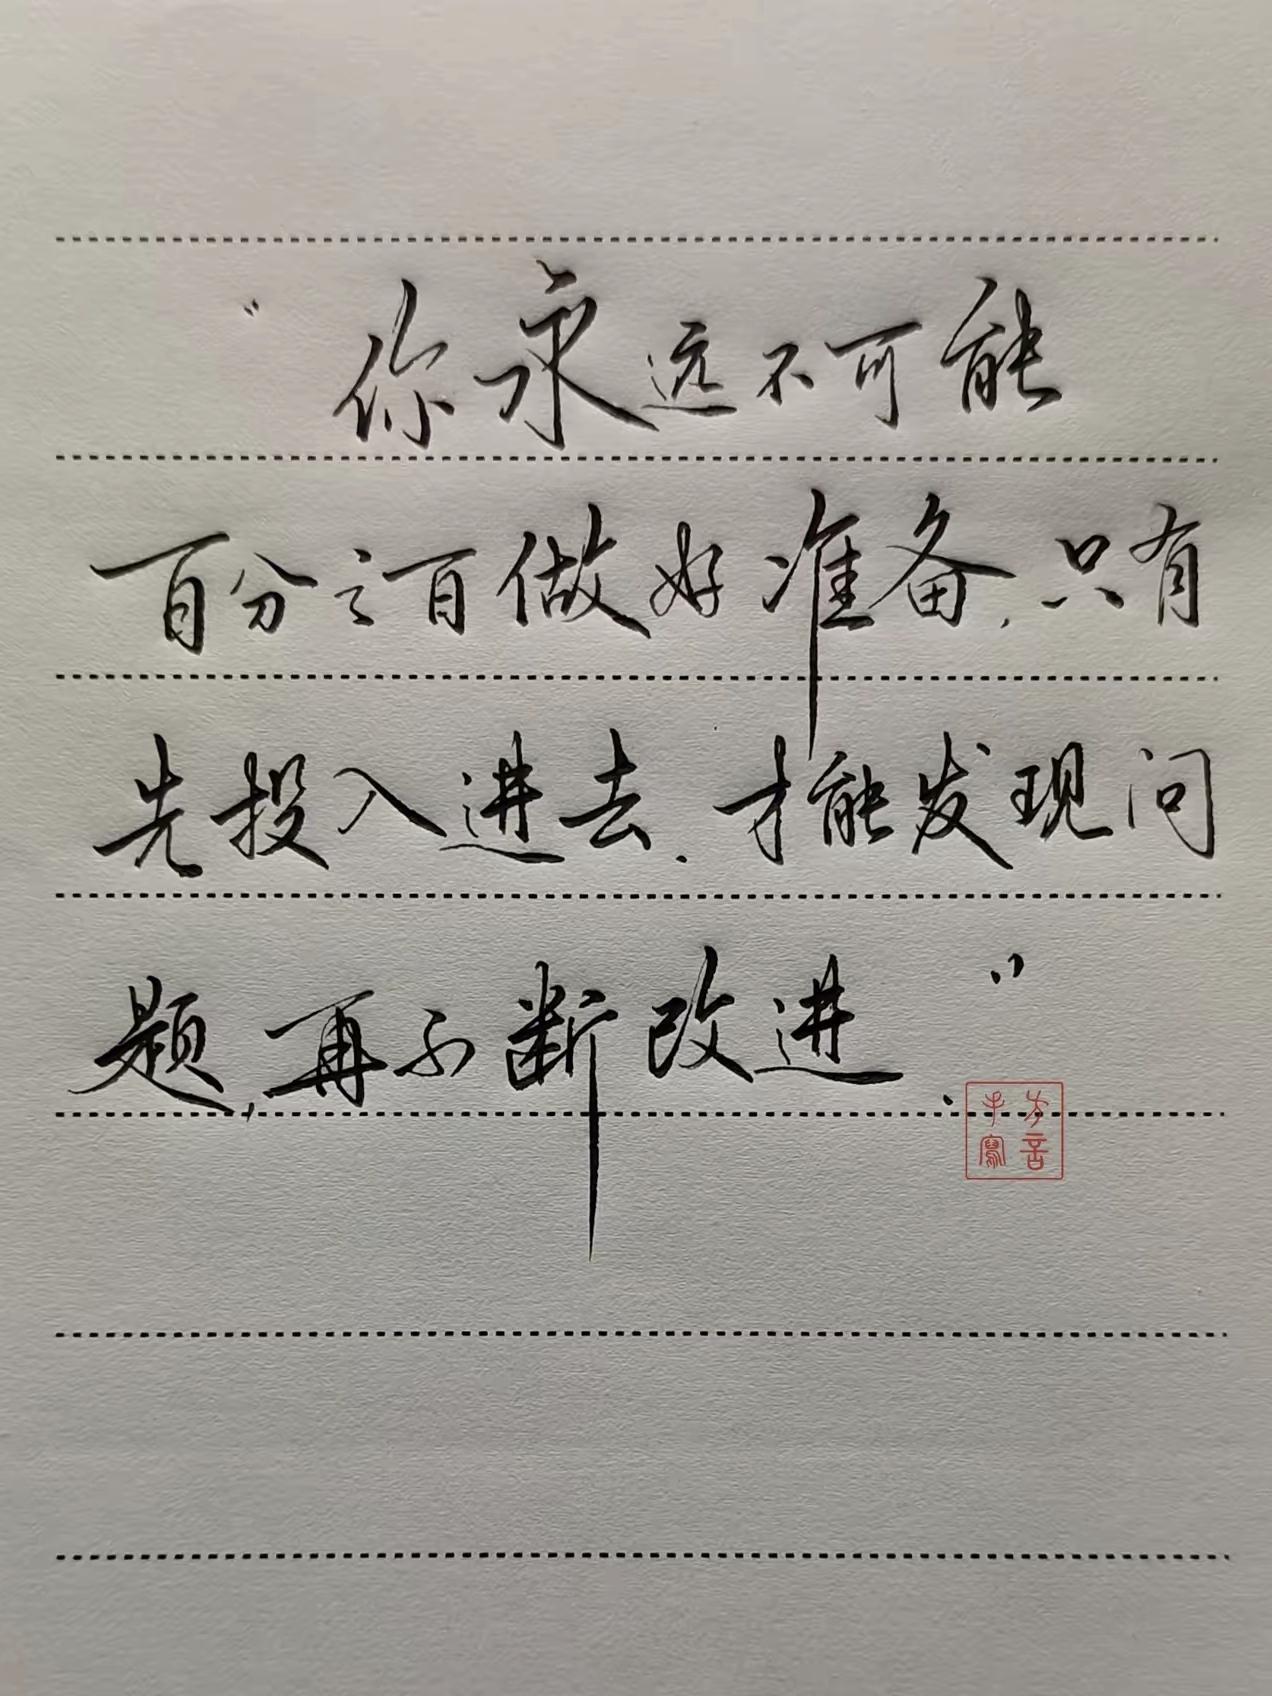 “你永远不可能
百分之百做好准备,只有
先投入进去.才能发现问
题,再不断改进.”